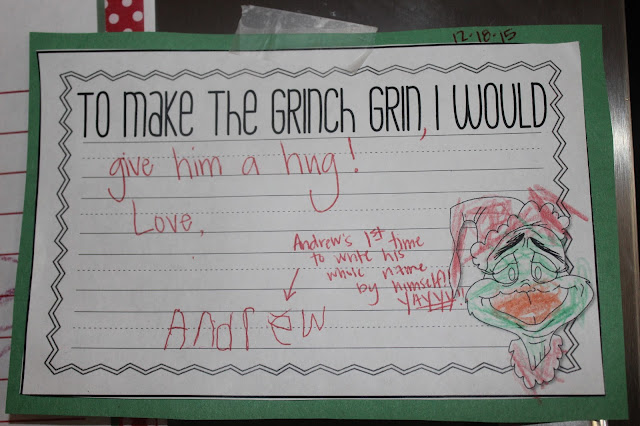 12-18-15
To make The GRINCH GRIN, I WOULD
give him a hug!
Love,
Andrew's 1st time
to write his
whole name
by himself!!
YAYYY!
Andrew